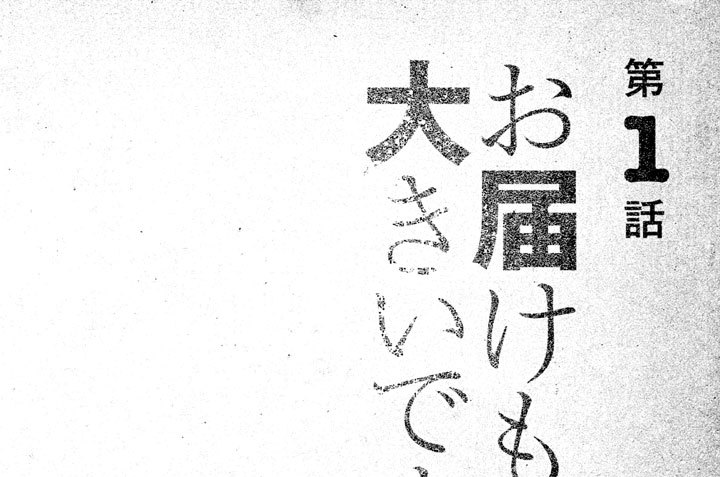 第1話
お届けも
大きいで